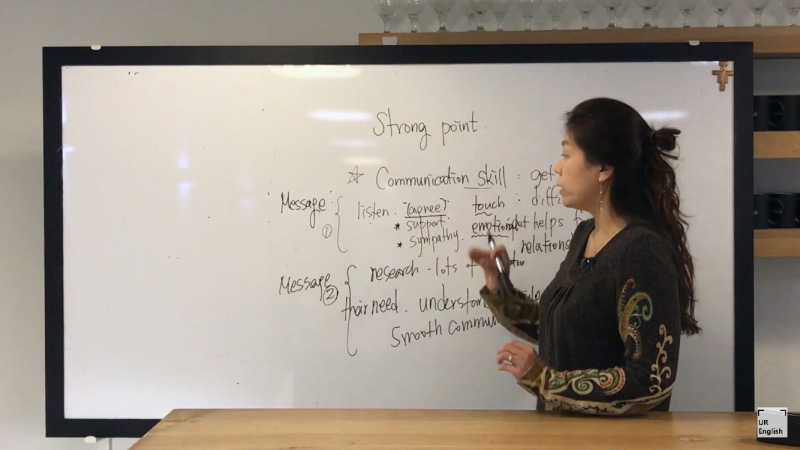 Strong point.
☆ Communication skill : get
Message ① listen. "(agree)" touch : diffi
* support. emotional helps
* sympathy. relations
Message ② research - lots of
their need. understan
Smooth Commu
UR
English